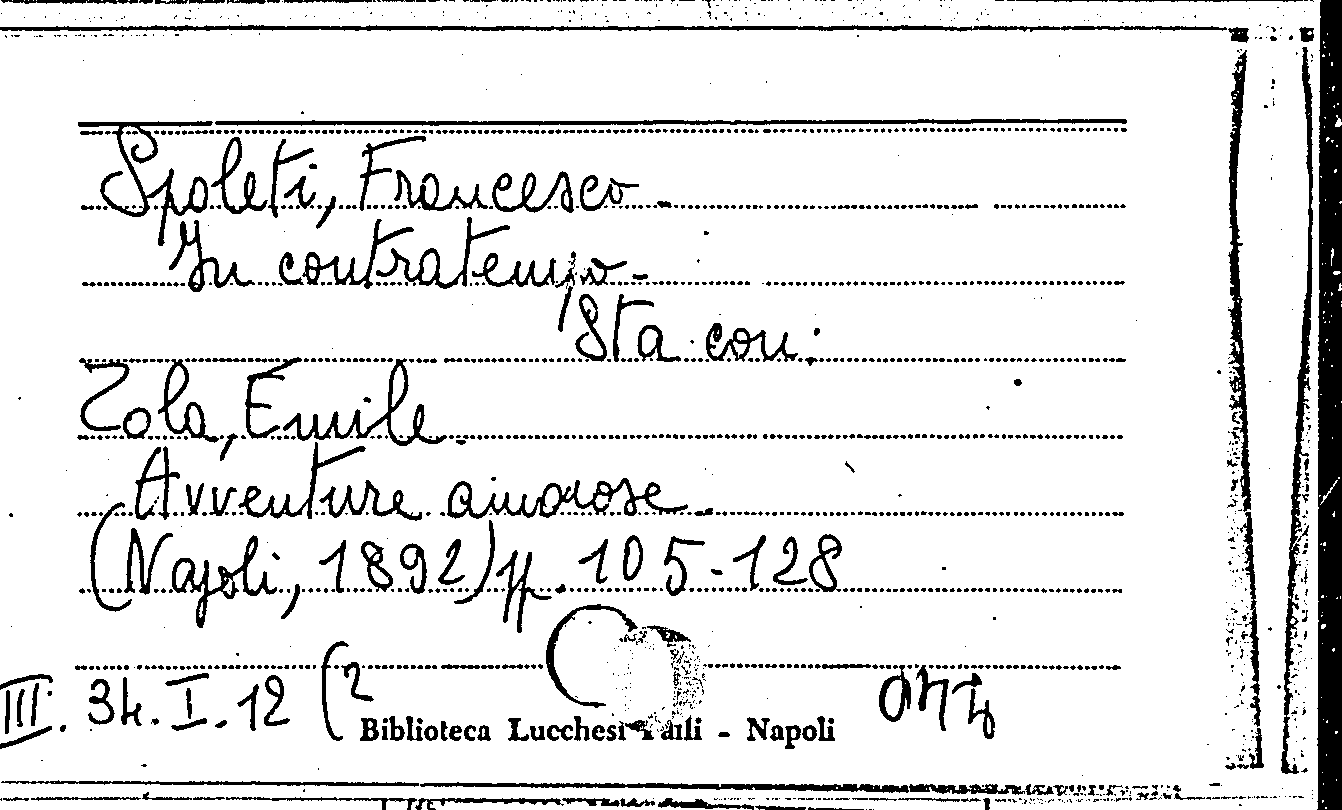 Spoleti, Francesco.
In contratempo.
Sta con:
Zola, Émile.
Avventure amorose.
(Napoli, 1892) pp. 105-128
III. 34. I. 12 (2
Biblioteca Lucchesi Palli - Napoli